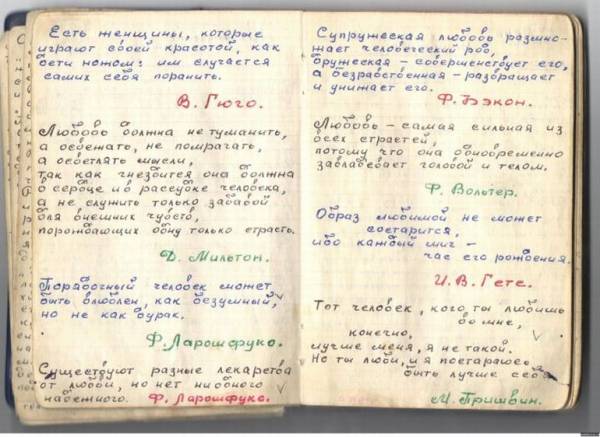 Есть женщины, которые
играют своей красотой, как
дети ножом: им случается
самих себя поранить.
В. Гюго.
Любовь должна не туманить,
а освежать, не помрачать,
а осветлять мысли,
так как гнездится она должна
в сердце и в рассудке человека,
а не служить только забавой
для внешних чувств,
порождающих одну только страсть.
Д. Мильтон.
Порядочный человек может
быть влюблен, как безумный,
но не как дурак.
Ф. Ларошфуко.
Существуют разные лекарства
от любви, но нет ни одного
надежного. Ф. Ларошфуко.
Супружеская любовь размно-
жает человеческий род,
дружеская - совершенствует его,
а безнравственная - развращает
и унижает его.
Ф. Бэкон.
Любовь - самая сильная из
всех страстей,
потому что она одновременно
завладевает головой и телом.
Ф. Вольтер.
Образ любимой не может
состарится,
ибо каждый миг -
час его рождения.
И. В. Гете.
Тот человек, кого ты любишь
во мне,
конечно,
лучше меня, я не такой.
Но ты люби, и я постараюсь
быть лучше себя
М. Пришвин.